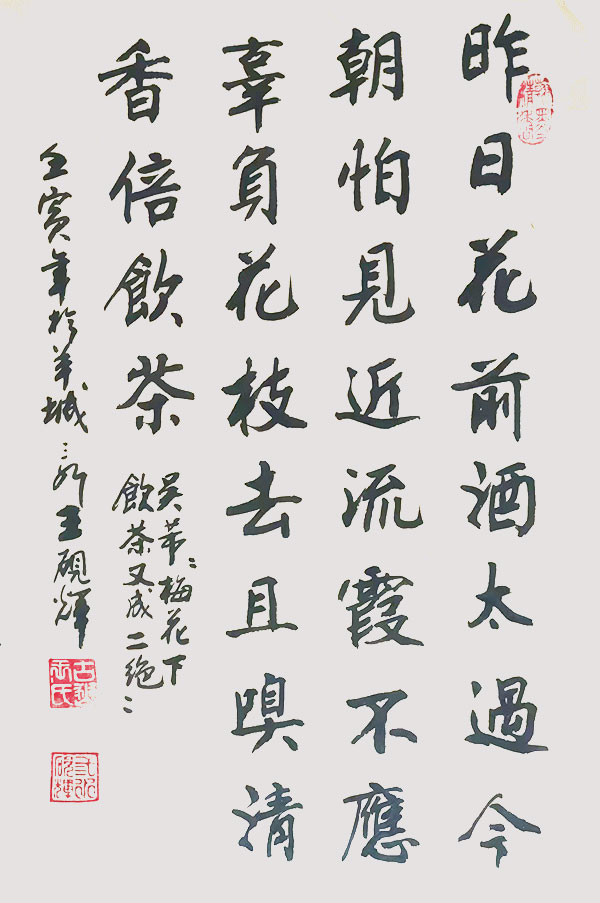 昨日花前酒太過今
朝怕見近流霞不應
辜負花枝去且嗅清
香倍飲茶
吳芾：梅花下
飲茶又成二絕：
壬寅年於羊城三水王硯輝